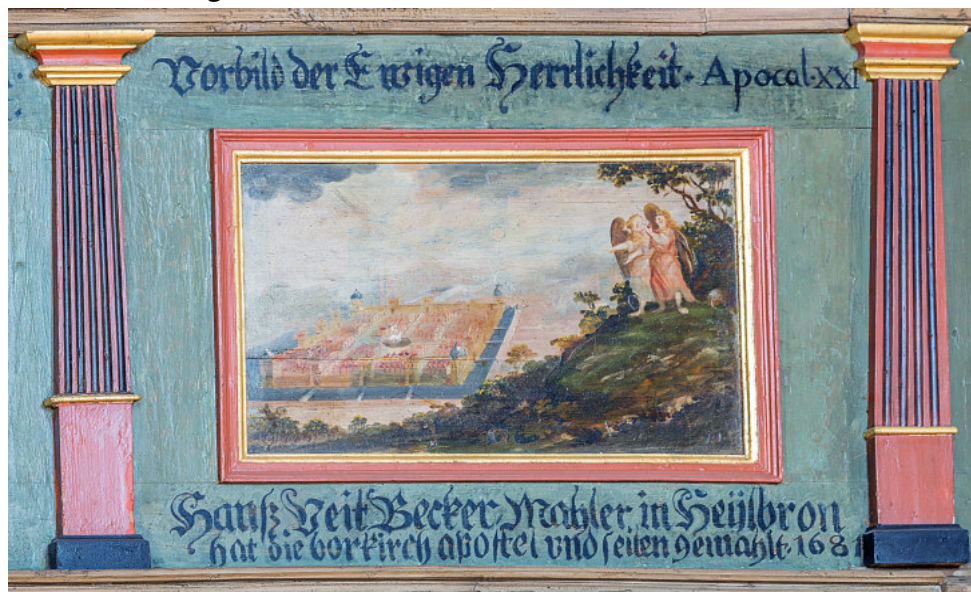 Vorbild der Ewigen Herrlichkeit · Apocal·XXI
Hanß Veit Becker, Mahler, in Heÿlbron
hat die borkirch apostel und seiten gemahlt· 1681